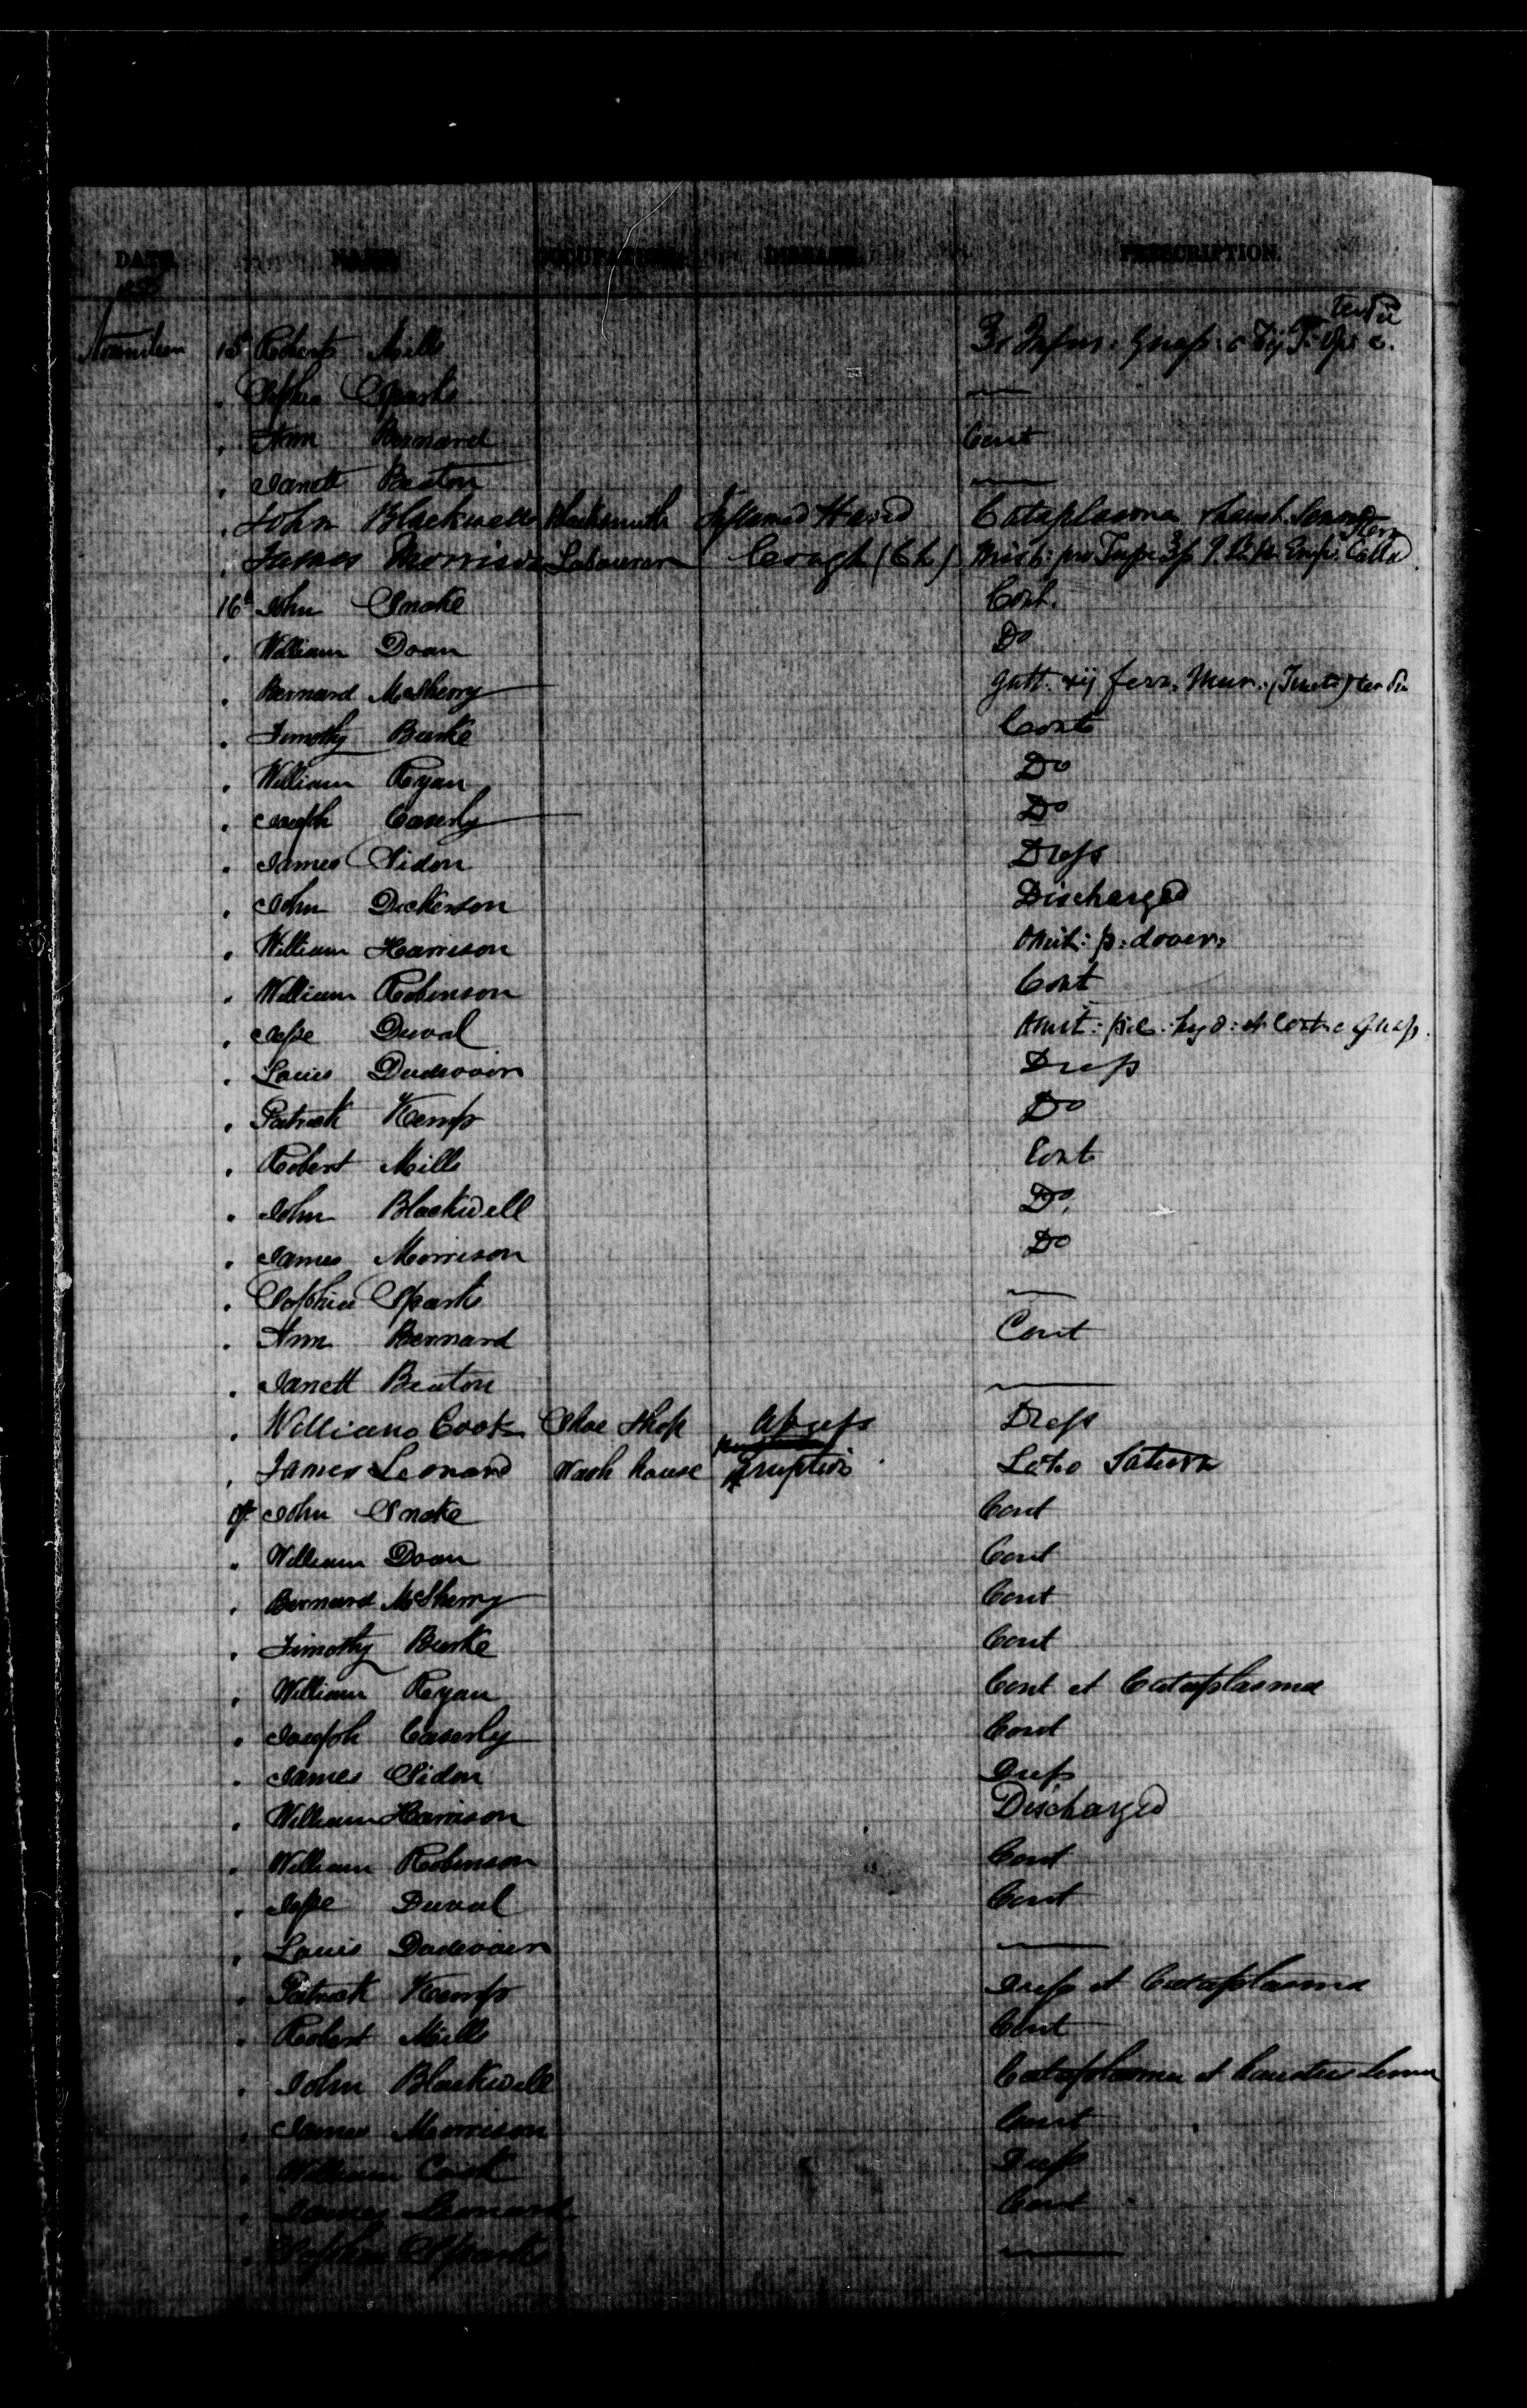 DATE NAME OCCUPATION DISEASE PRESCRIPTION.
ter die
15 Robert Mills
" Sophia Sparks —
" Ann Bernard Cont
" Janett Beaton —
" John Blackwell Blacksmith Inflamed Hand Cataplasma
" James Morrison Labourer Cough (Ch)
16 John Snoke Cont.
" William Doan Do
" Bernard McSherry Gutt. xij ferr. Mur. (Tinct) ter die
" Timothy Burke Cont
" William Ryan Do
" Joseph Caserly Do
" James Sidon Dress
" John Dickerson Discharged
" William Harrison Omit: p: dover:
" William Robinson Cont
" Jesse Duval Omit: pil: hyd: et Cont
" Louis Dress
" Patrick Kemp Do
" Robert Mills Cont
" John Blackwell Do.
" James Morrison Do
" Sophia Sparks —
" Ann Bernard Cont
" Janett Beaton —
" William Cook Shoe Shop Abscess Dress
" James Leonard Wash house Eruption Lotio
17 John Snoke Cont
" William Doan Cont
" Bernard McSherry Cont
" Timothy Burke Cont
" William Ryan Cont et Cataplasma
" Joseph Caserly Cont
" James Sidon Dress
" William Harrison Discharged
" William Robinson Cont
" Jesse Duval Cont
" Louis —
" Patrick Kemp Dress et Cataplasma
" Robert Mills Cont
" John Blackwell Cataplasma et haustus
" James Morrison Cont
" William Cook Dress
" James Leonard Cont
" Sophia Sparks —